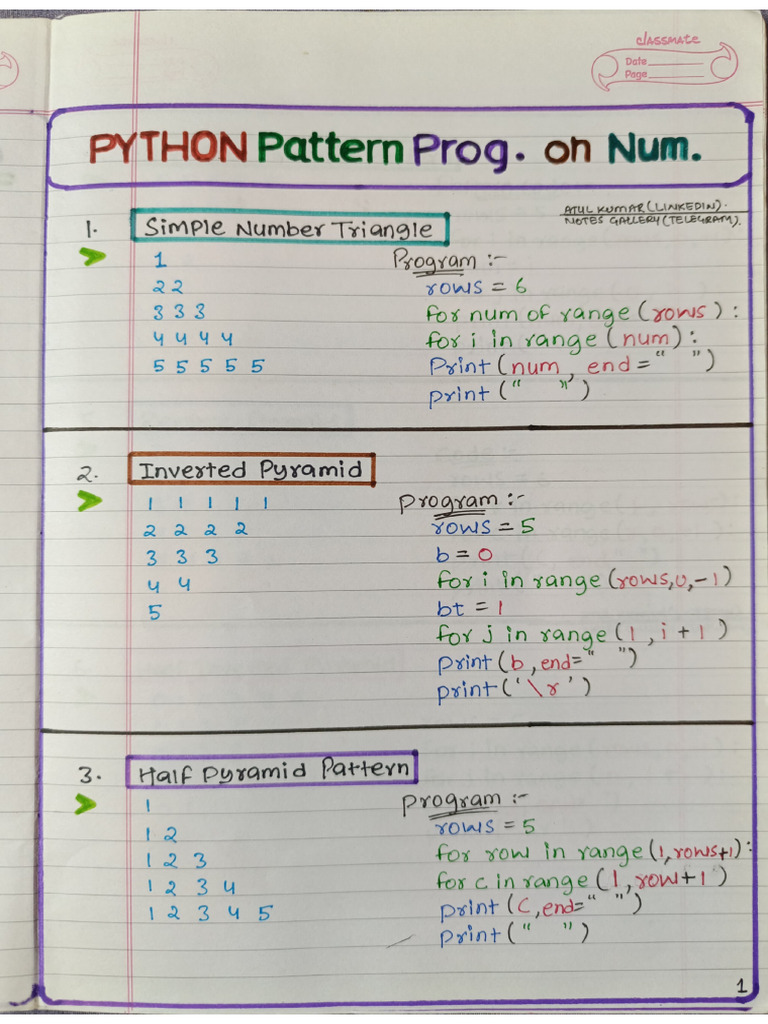 classmate
Date
Page
PYTHON Pattern Prog. on Num.
ATUL KUMAR (LINKEDIN).
NOTES GALLERY (TELEGRAM).
1. Simple Number Triangle
1
2 2
3 3 3
4 4 4 4
5 5 5 5 5
Program :-
rows = 6
for num of range (rows) :
for i in range (num) :
Print (num, end = " ")
print (" ")
2. Inverted Pyramid
1 1 1 1 1
2 2 2 2
3 3 3
4 4
5
Program :-
rows = 5
b = 0
for i in range (rows,0,-1)
bt = 1
for j in range (1, i + 1)
print (b, end= " ")
print ('\r')
3. Half Pyramid Pattern
1
1 2
1 2 3
1 2 3 4
1 2 3 4 5
Program :-
rows = 5
for row in range (1, rows+1) :
for c in range (1, row+1)
print (C, end= " ")
print (" ")
1